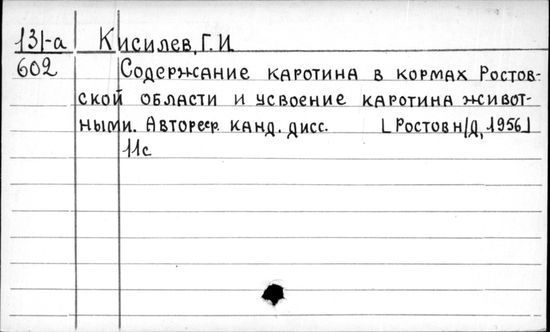 131-а Кисилев, Г. И
602 Содержание каротина в кормах Ростов-
ской области и усвоение каротина живот-
ными. Автореф. канд. дисс. [Ростов н/Д, 1956]
11с